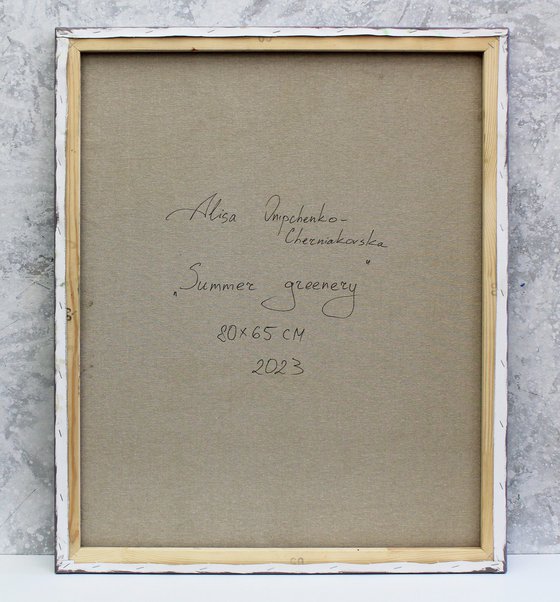 Alisa Onipchenko-
Cherniakovska
„Summer greenery"
80×65 см
2023